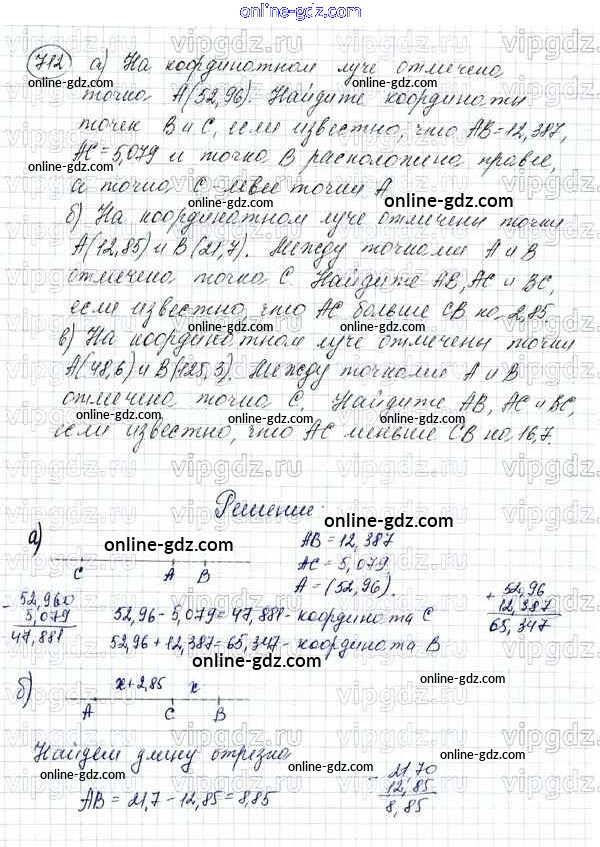 online-gdz.com
712 а) На координатном луче отмечена
точка А(52,96). Найдите координаты
точек В и С, если известно, что АВ=12,387,
АС=5,079 и точка В расположена правее,
а точка С левее точки А
б) На координатном луче отмечены точки
А(12,85) и В(21,7). Между точками А и В
отмечена точка С. Найдите АВ, АС и ВС,
если известно, что АС больше СВ на 2,85.
в) На координатном луче отмечены точки
А(48,6) и В(125,3). Между точками А и В
отмечена точка С. Найдите АВ, АС и ВС,
если известно, что АС меньше СВ на 16,7.
Решение:
а)
АВ = 12,387
АС = 5,079
А = (52,96).
С А В
- 52,960
5,079
47,881
52,96 - 5,079 = 47,881 - координата С
52,96 + 12,387 = 65,347 - координата В
+ 52,96
12,387
65,347
б)
x+2,85 x
А С В
Найдем длину отрезка
АВ = 21,7 - 12,85 = 8,85
- 21,70
12,85
8,85